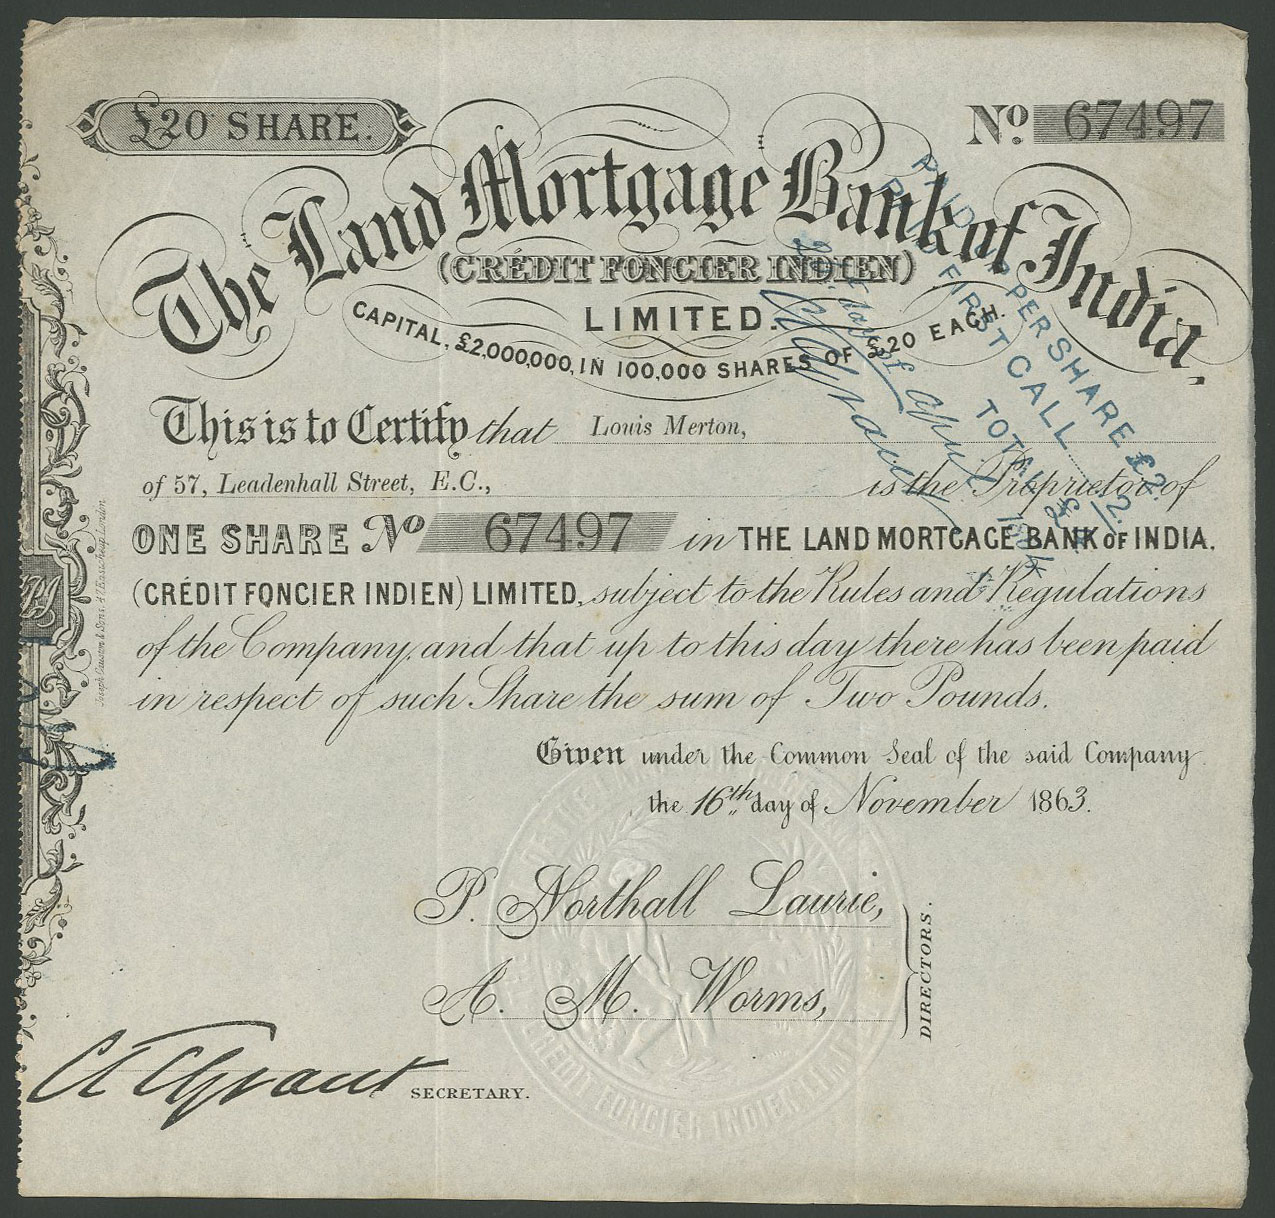 £20 SHARE.
No. 67497
The Land Mortgage Bank of India.
(CRÉDIT FONCIER INDIEN)
LIMITED.
CAPITAL, £2,000,000, IN 100,000 SHARES OF £20 EACH.
PAID UP PER SHARE £2.
PAID FIRST CALL 2.
TOTAL £4
day of April
This is to Certify that Louis Merton,
of 57, Leadenhall Street, E.C., is the Proprietor of
ONE SHARE No 67497 in THE LAND MORTGAGE BANK OF INDIA.
(CRÉDIT FONCIER INDIEN) LIMITED, subject to the Rules and Regulations
of the Company, and that up to this day there has been paid
in respect of such Share the sum of Two Pounds.
Given under the Common Seal of the said Company
the 16th day of November 1863.
P. Northall Laurie,
A. M. Worms,
DIRECTORS.
SECRETARY.
Joseph Causton & Sons, 47 Eastcheap London
CREDIT FONCIER INDIEN